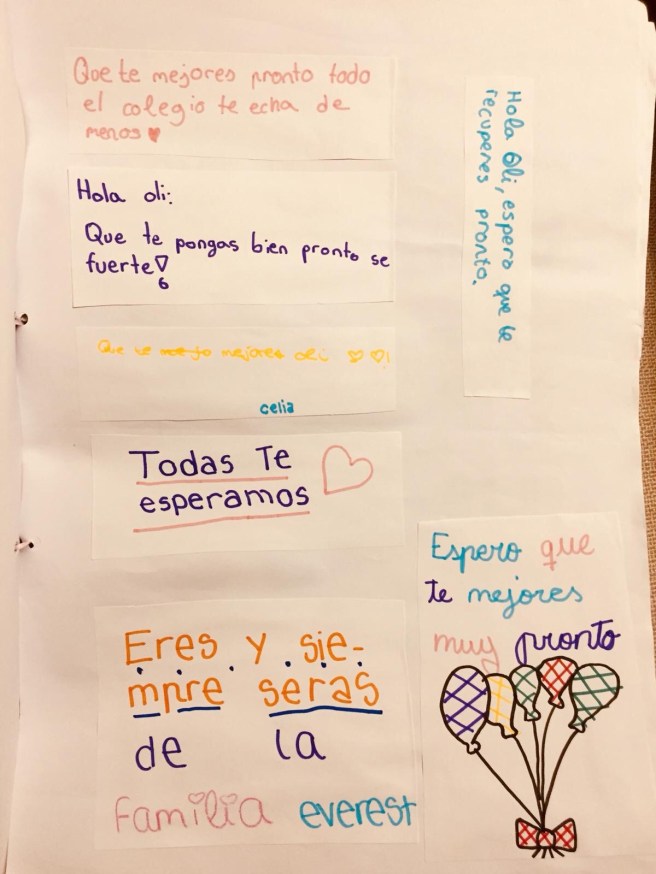 Que te mejores pronto todo
el colegio te echa de
menos ♥
Hola oli:
Que te pongas bien pronto se
fuerte!
6
Que te mejores oli ♡ ♡!
celia
Todas Te
esperamos
Eres y sie-
mpre seras
de la
Familia everest
Hola Oli, espero que te
recuperes pronto.
Espero que
te mejores
muy pronto